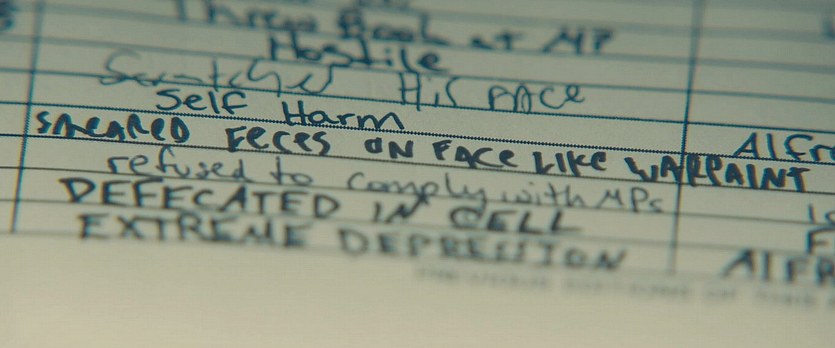 Threw Book at MP
Hostile
Scratched His FACE
Self Harm
SMEARED FECES ON FACE LIKE WARPAINT Alfr
refused to comply with MPs
DEFECATED IN CELL
EXTREME DEPRESSION AlFR